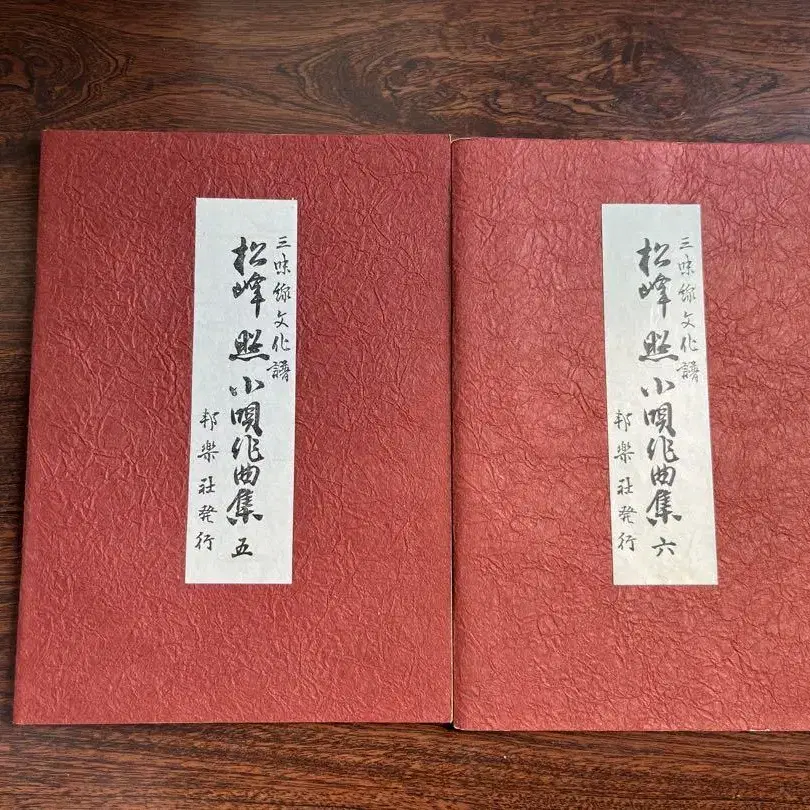 三味線文化譜
松峰照小唄作曲集 五
邦楽社発行
三味線文化譜
松峰照小唄作曲集 六
邦楽社発行